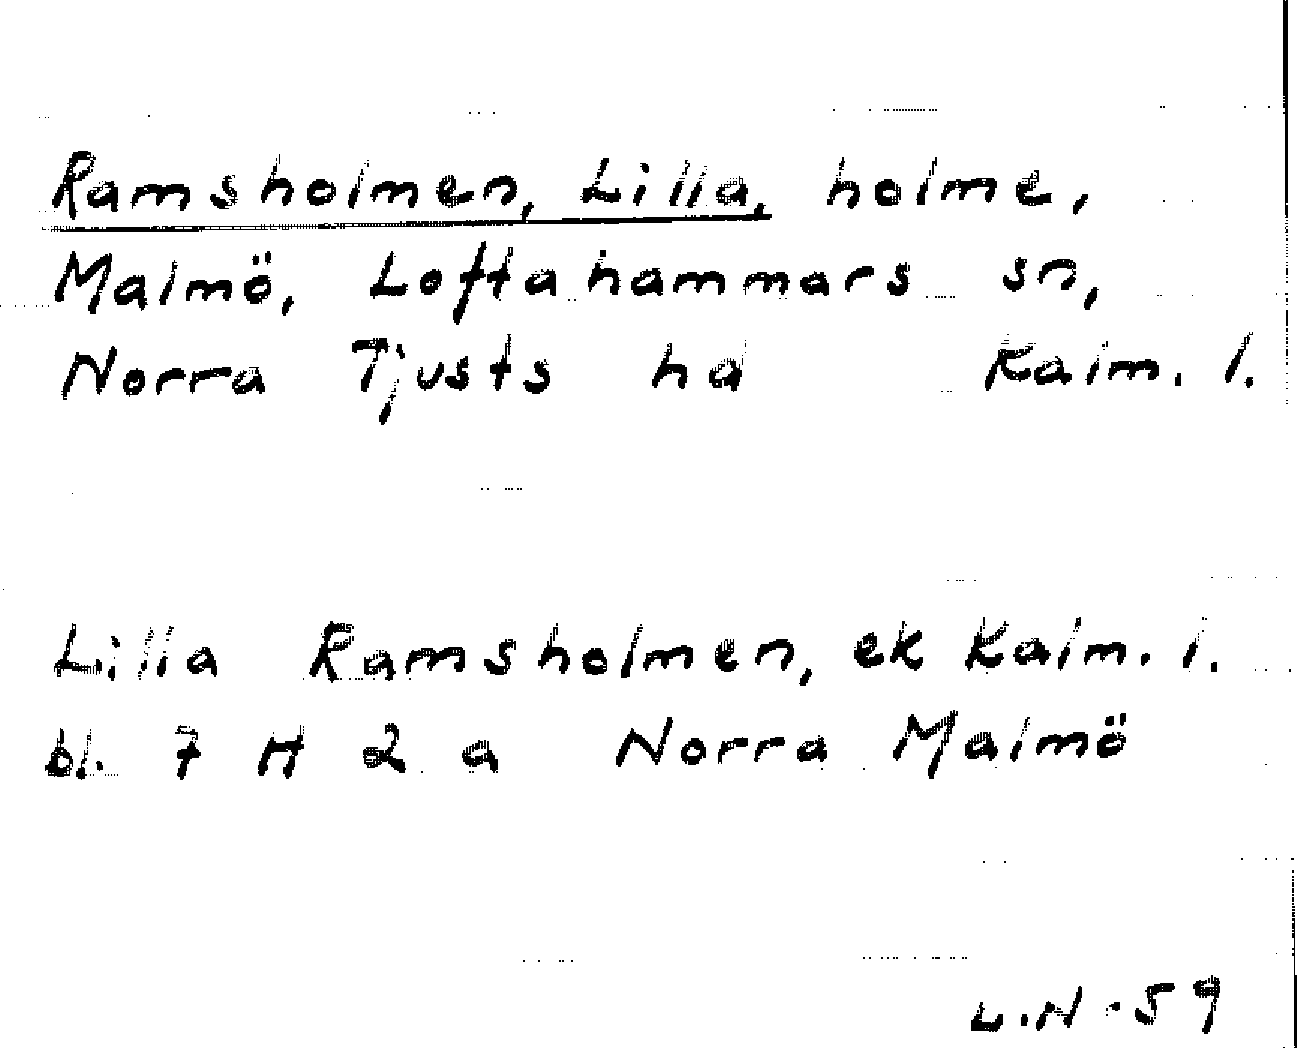 Ramsholmen, Lilla, holme,
Malmö, Loftahammars sn,
Norra Tjusts hd Kalm. l.
Lilla Ramsholmen, ek Kalm. l.
bl. 7 H 2 a Norra Malmö
L.N.-59